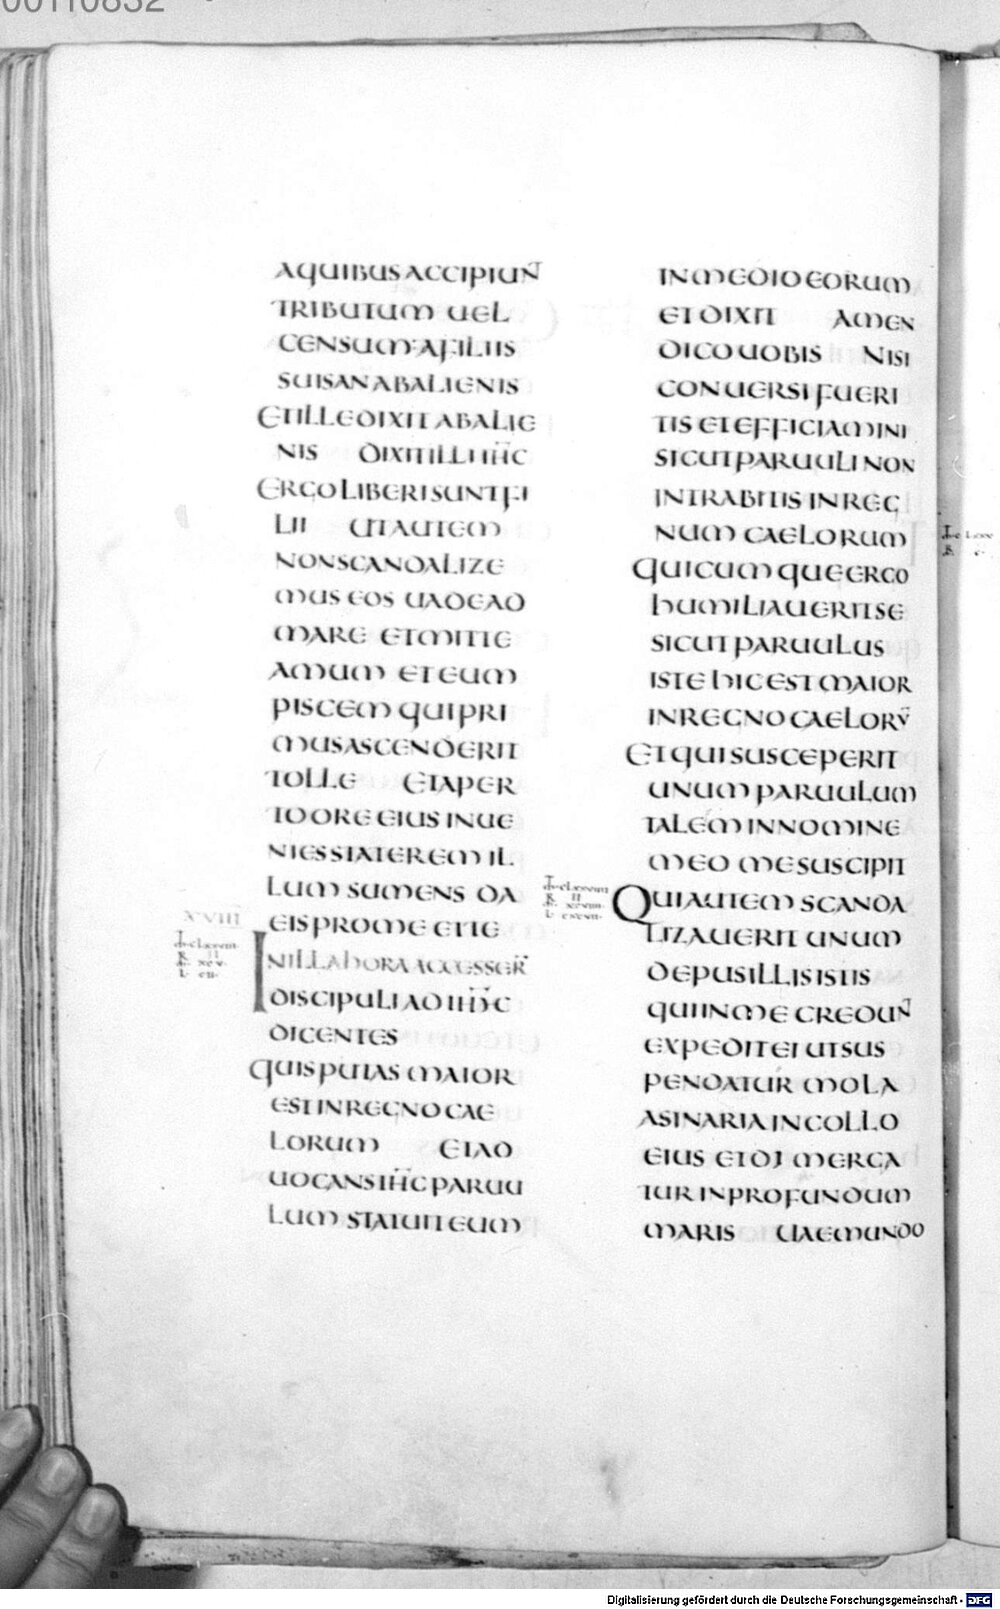 00110832
AQUIBUS ACCIPIUN̄T
TRIBUTUM UEL
CENSUM· A FILIIS
SUIS AN AB ALIENIS
ET ILLE DIXIT AB ALIE
NIS DIXIT ILLI IH̄C
ERGO LIBERI SUNT FI
LII UT AUTEM
NON SCANDALIZE
MUS EOS UADE AD
MARE ET MITTE
AMUM ET EUM
PISCEM QUI PRI
MUS ASCENDERIT
TOLLE ET APER
TO ORE EIUS INUE
NIES STATEREM IL
LUM SUMENS DA
EIS PRO ME ET TE
XVIIII
IN ILLA HORA ACCESSER̄
DISCIPULI AD IH̄C
DICENTES
QUIS PUTAS MAIOR
EST IN REGNO CAE
LORUM ET AD
UOCANS IH̄C PARUU
LUM STATUIT EUM
IN MEDIO EORUM
ET DIXIT AMEN
DICO UOBIS NISI
CONUERSI FUERI
TIS ET EFFICIAMINI
SICUT PARUULI NON
INTRABITIS IN REG
NUM CAELORUM
QUICUMQUE ERGO
HUMILIAUERIT SE
SICUT PARUULUS
ISTE HIC EST MAIOR
IN REGNO CAELORŪ
ET QUI SUSCEPERIT
UNUM PARUULUM
TALEM IN NOMINE
MEO ME SUSCIPIT
QUI AUTEM SCANDA
LIZAUERIT UNUM
DE PUSILLIS ISTIS
QUI IN ME CREDUN̄T
EXPEDIT EI UT SUS
PENDATUR MOLA
ASINARIA IN COLLO
EIUS ET DIMERGA
TUR IN PROFUNDUM
MARIS UAE MUNDO
Digitalisierung gefördert durch die Deutsche Forschungsgemeinschaft - DFG